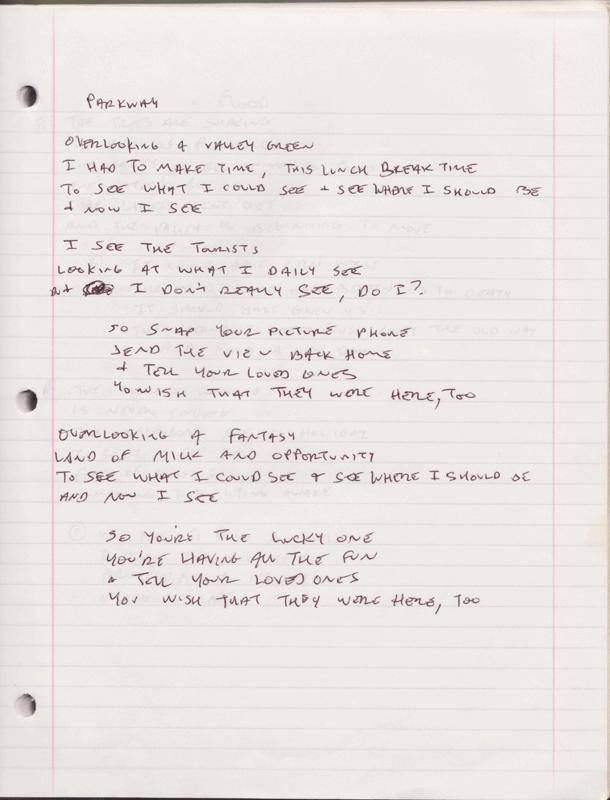 PARKWAY
OVERLOOKING A VALLEY GREEN
I HAD TO MAKE TIME, THIS LUNCH BREAK TIME
TO SEE WHAT I COULD SEE + SEE WHERE I SHOULD BE
+ NOW I SEE
I SEE THE TOURISTS
LOOKING AT WHAT I DAILY SEE
BUT I DON'T REALLY SEE, DO I?
SO SNAP YOUR PICTURE PHONE
SEND THE VIEW BACK HOME
+ TELL YOUR LOVED ONES
YOU WISH THAT THEY WERE HERE, TOO
OVERLOOKING A FANTASY
LAND OF MILK AND OPPORTUNITY
TO SEE WHAT I COULD SEE + SEE WHERE I SHOULD BE
AND NOW I SEE
SO YOU'RE THE LUCKY ONE
YOU'RE HAVING ALL THE FUN
+ TELL YOUR LOVED ONES
YOU WISH THAT THEY WERE HERE, TOO